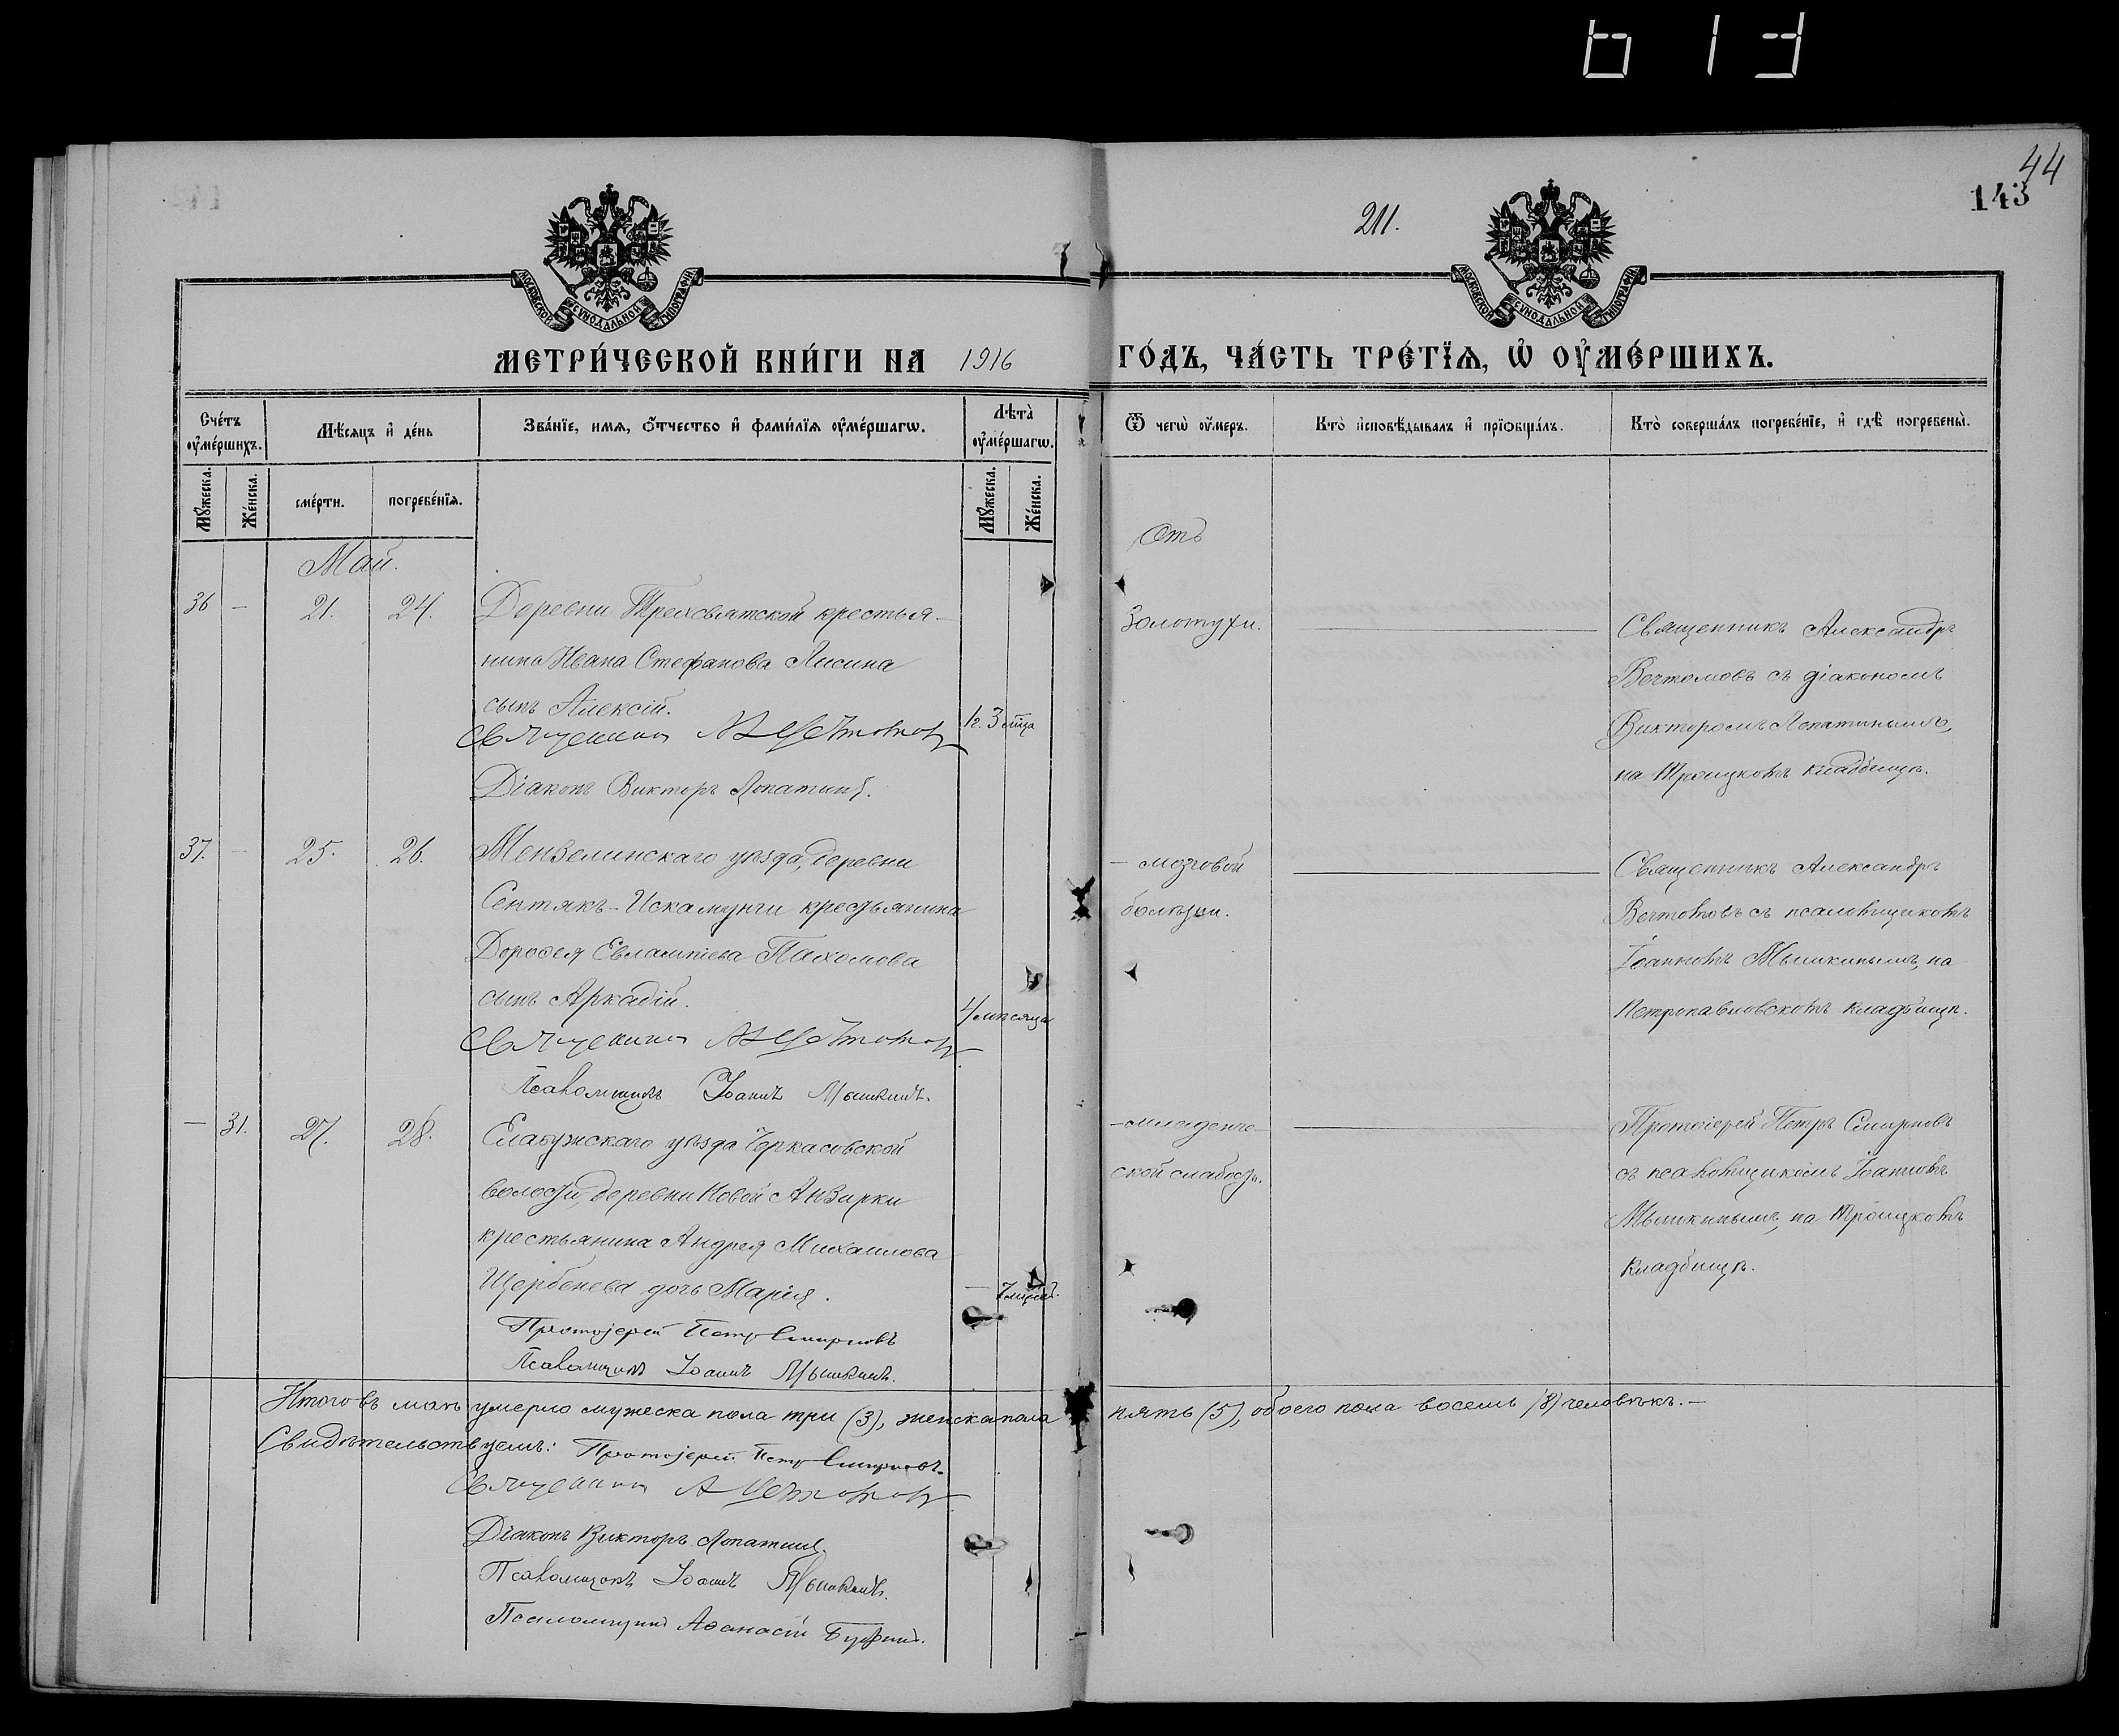 44
143
211.
МОСКОВСКОЙ СѴНОДАЛЬНОЙ ТИПОГРАФІИ
МОСКОВСКОЙ СѴНОДАЛЬНОЙ ТИПОГРАФІИ
МЕТРИ́ЧЕСКОЙ КНИ́ГИ НА 1916 ГО́ДЪ, ЧА́СТЬ ТРЕ́ТЇѦ, Ѡ҆ ОУ҆МЕ́РШИХЪ.
Сче́тъ оу҆ме́ршихъ.
Мѣ́сѧцъ и҆ де́нь
Зва́нїе, имѧ, о҆́тчество и҆ фами́лїѧ оу҆ме́ршагѡ.
Лѣта̀ оу҆ме́ршагѡ.
Ѿ чегѡ̀ оу҆́меръ.
Кто̀ и҆сповѣ́дывалъ и҆ прїѡбща́лъ.
Кто̀ соверша́лъ погребе́нїе, и҆ гдѣ̀ погребены̀.
Мꙋ́жеска.
Же́нска.
сме́рти.
погребе́нїѧ.
Мꙋ́жеска.
Же́нска.
Май.
Отъ
36 — 21. 24. Деревни Трехсвятской крестья-
нина Ивана Стефанова Лисина
сынъ Алексій.
1 г. 3 м̃ца
Священникъ А Вечтомовъ
Діаконъ Викторъ Лопатинъ.
Золотухи.
Священникъ Александръ
Вечтомовъ съ діакономъ
Викторомъ Лопатинымъ,
на Троицкомъ кладбищѣ.
37. — 25. 26. Мензелинскаго уѣзда, деревни
Сентякъ-Искамунги крестьянина
Дорофея Евлампіева Пахомова
сынъ Аркадій.
4 мѣсяца
Священникъ А Вечтомовъ
Псаломщикъ Іоаннъ Мышкинъ.
— мозговой
болѣзни.
Священникъ Александръ
Вечтомовъ съ псаломщикомъ
Іоанномъ Мышкинымъ, на
Петропавловскомъ кладбищѣ.
— 31. 27. 28. Елабужскаго уѣзда Черкасовской
волости, деревни Новой Анзирки
крестьянина Андрея Михаилова
Щербенева дочь Марія.
Протоіерей Петръ Смирновъ
Псаломщикъ Іоаннъ Мышкинъ.
— младенче-
ской слабости.
Протоіерей Петръ Смирновъ
съ псаломщикомъ Іоанномъ
Мышкинымъ, на Троицкомъ
кладбищѣ.
Итого въ маѣ умерло мужеска пола три (3), женска пола пять (5), обоего пола восемь (8) человѣкъ. —
Свидѣтельствуемъ: Протоіерей Петръ Смирновъ.
Священникъ А Вечтомовъ
Діаконъ Викторъ Лопатинъ.
Псаломщикъ Іоаннъ Мышкинъ.
Псаломщикъ Аѳанасій